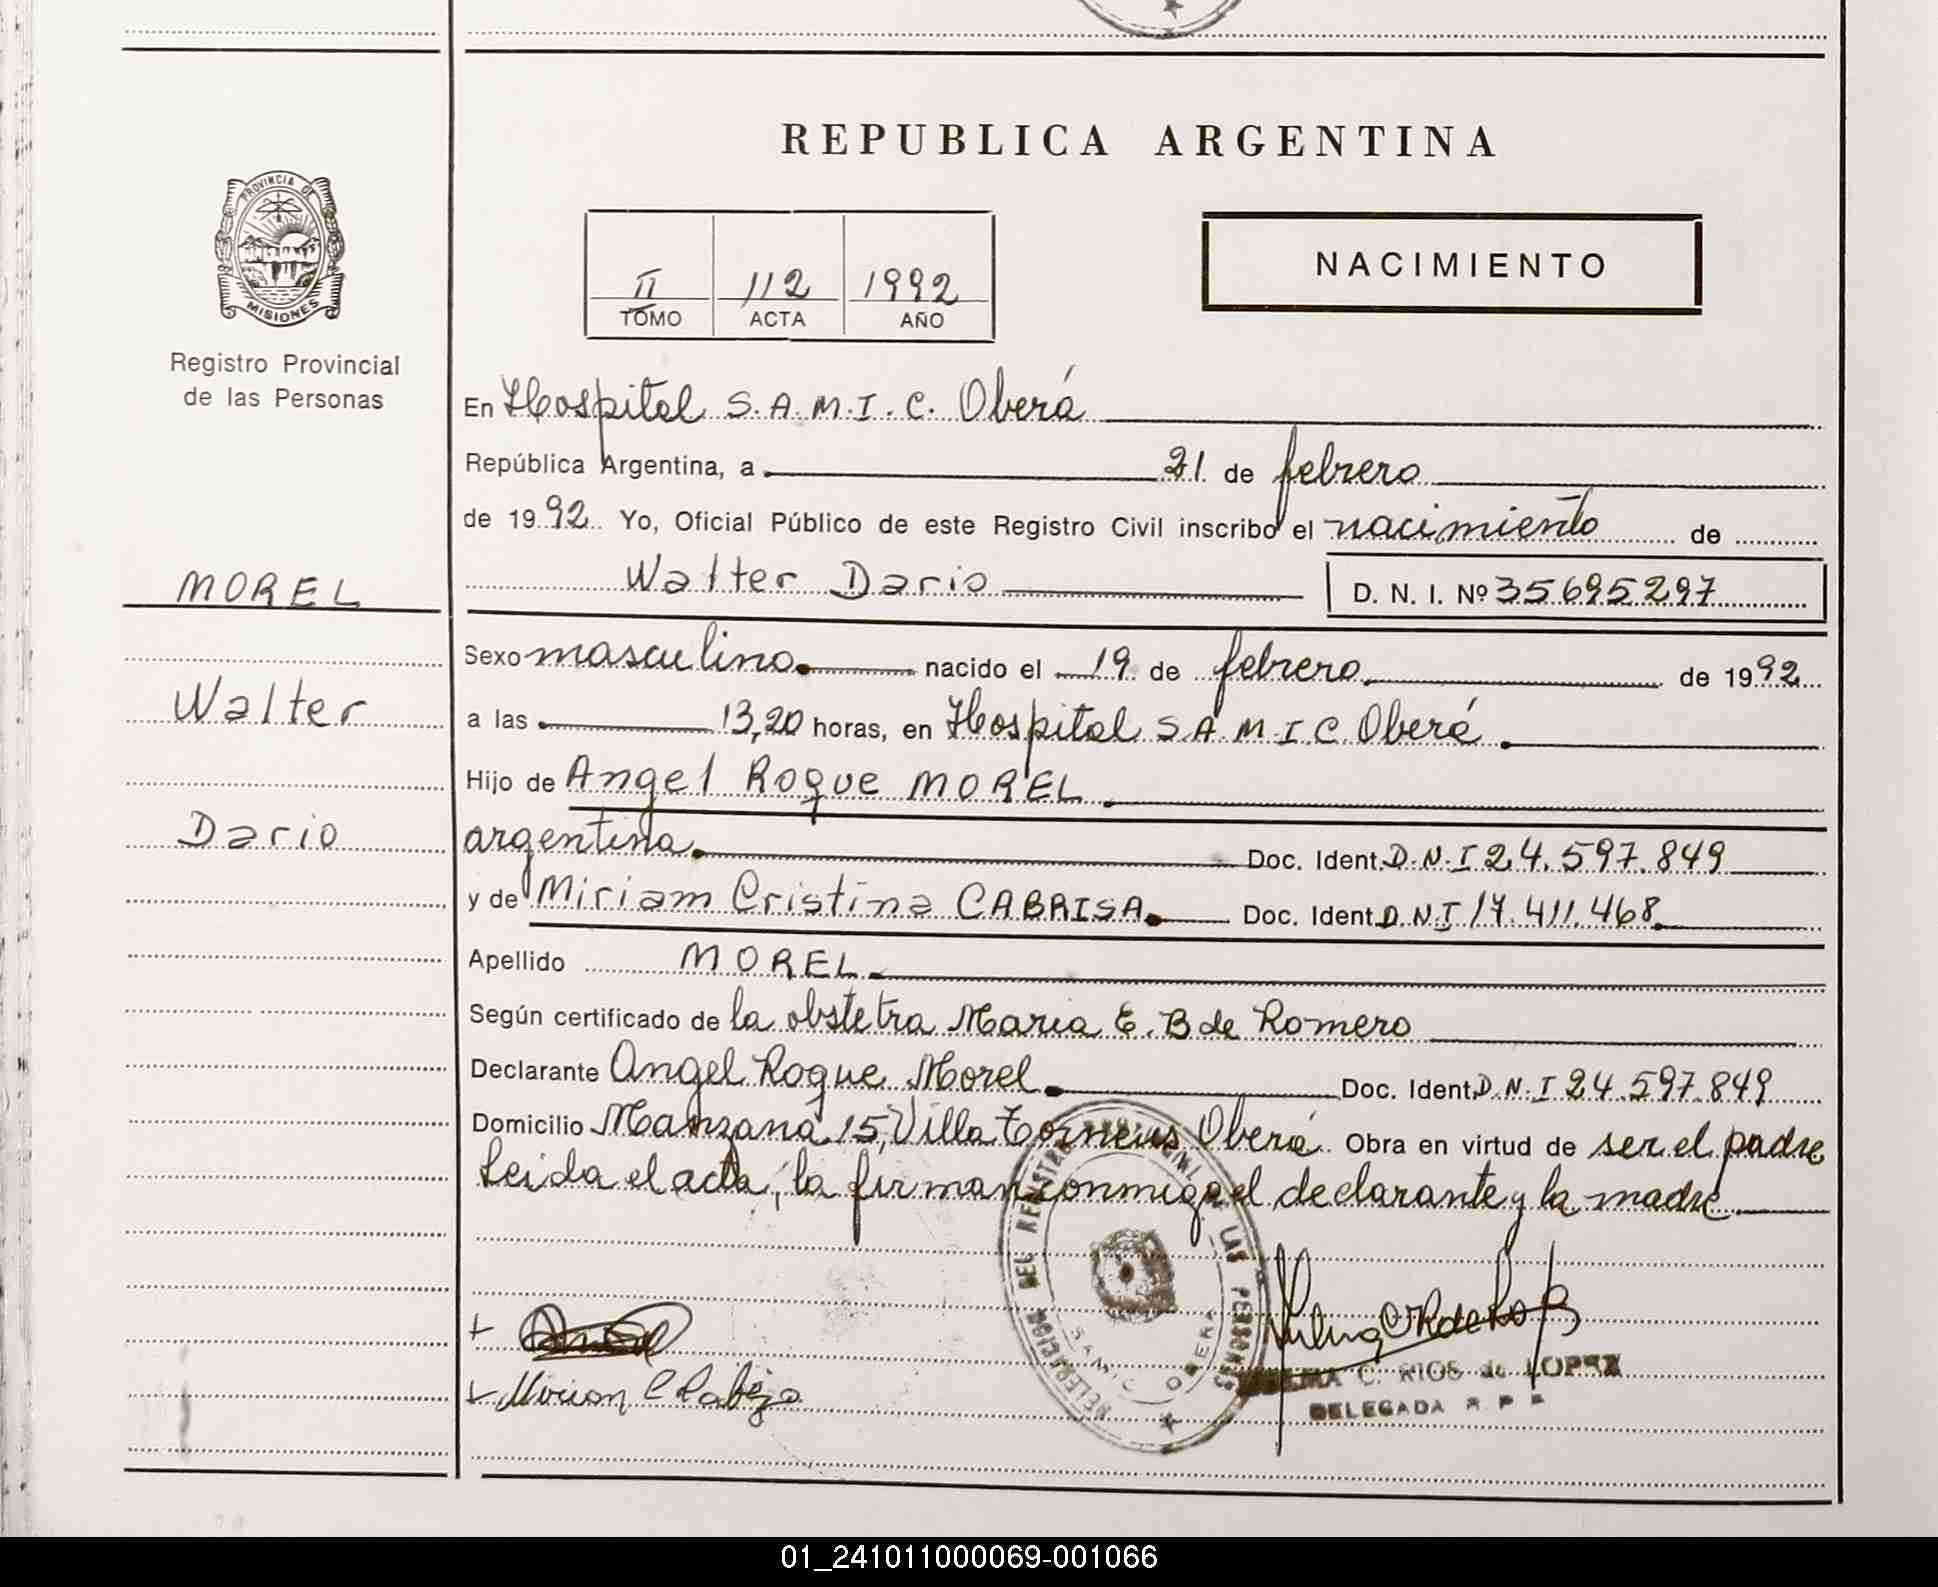 REPUBLICA ARGENTINA
PROVINCIA DE
MISIONES
Registro Provincial
de las Personas
II 112 1992
TOMO ACTA AÑO
NACIMIENTO
En Hospital S.A.M.I.C. Oberá
República Argentina, a 21 de febrero
de 1992 Yo, Oficial Público de este Registro Civil inscribo el nacimiento de
Walter Dario D. N. I. Nº 35695297
MOREL
Walter
Dario
Sexo masculino nacido el 19 de febrero de 1992
a las 13,20 horas, en Hospital S.A.M.I.C. Oberá
Hijo de Angel Roque MOREL
argentina Doc. Ident. D.N.I 24.597.849
y de Miriam Cristina CABRISA Doc. Ident. D.N.I 17.411.468
Apellido MOREL
Según certificado de la obstetra Maria E. B de Romero
Declarante Angel Roque Morel Doc. Ident. D.N.I 24.597.849
Domicilio Manzana 15, Villa Oberá Obra en virtud de ser el padre
Leida el acta, la firman conmigo el declarante y la madre
DELEGACION DEL REGISTRO PROVINCIAL DE LAS PERSONAS
SAMIC OBERA
C. RIOS de LOPEZ
DELEGADA R P P
01_241011000069-001066